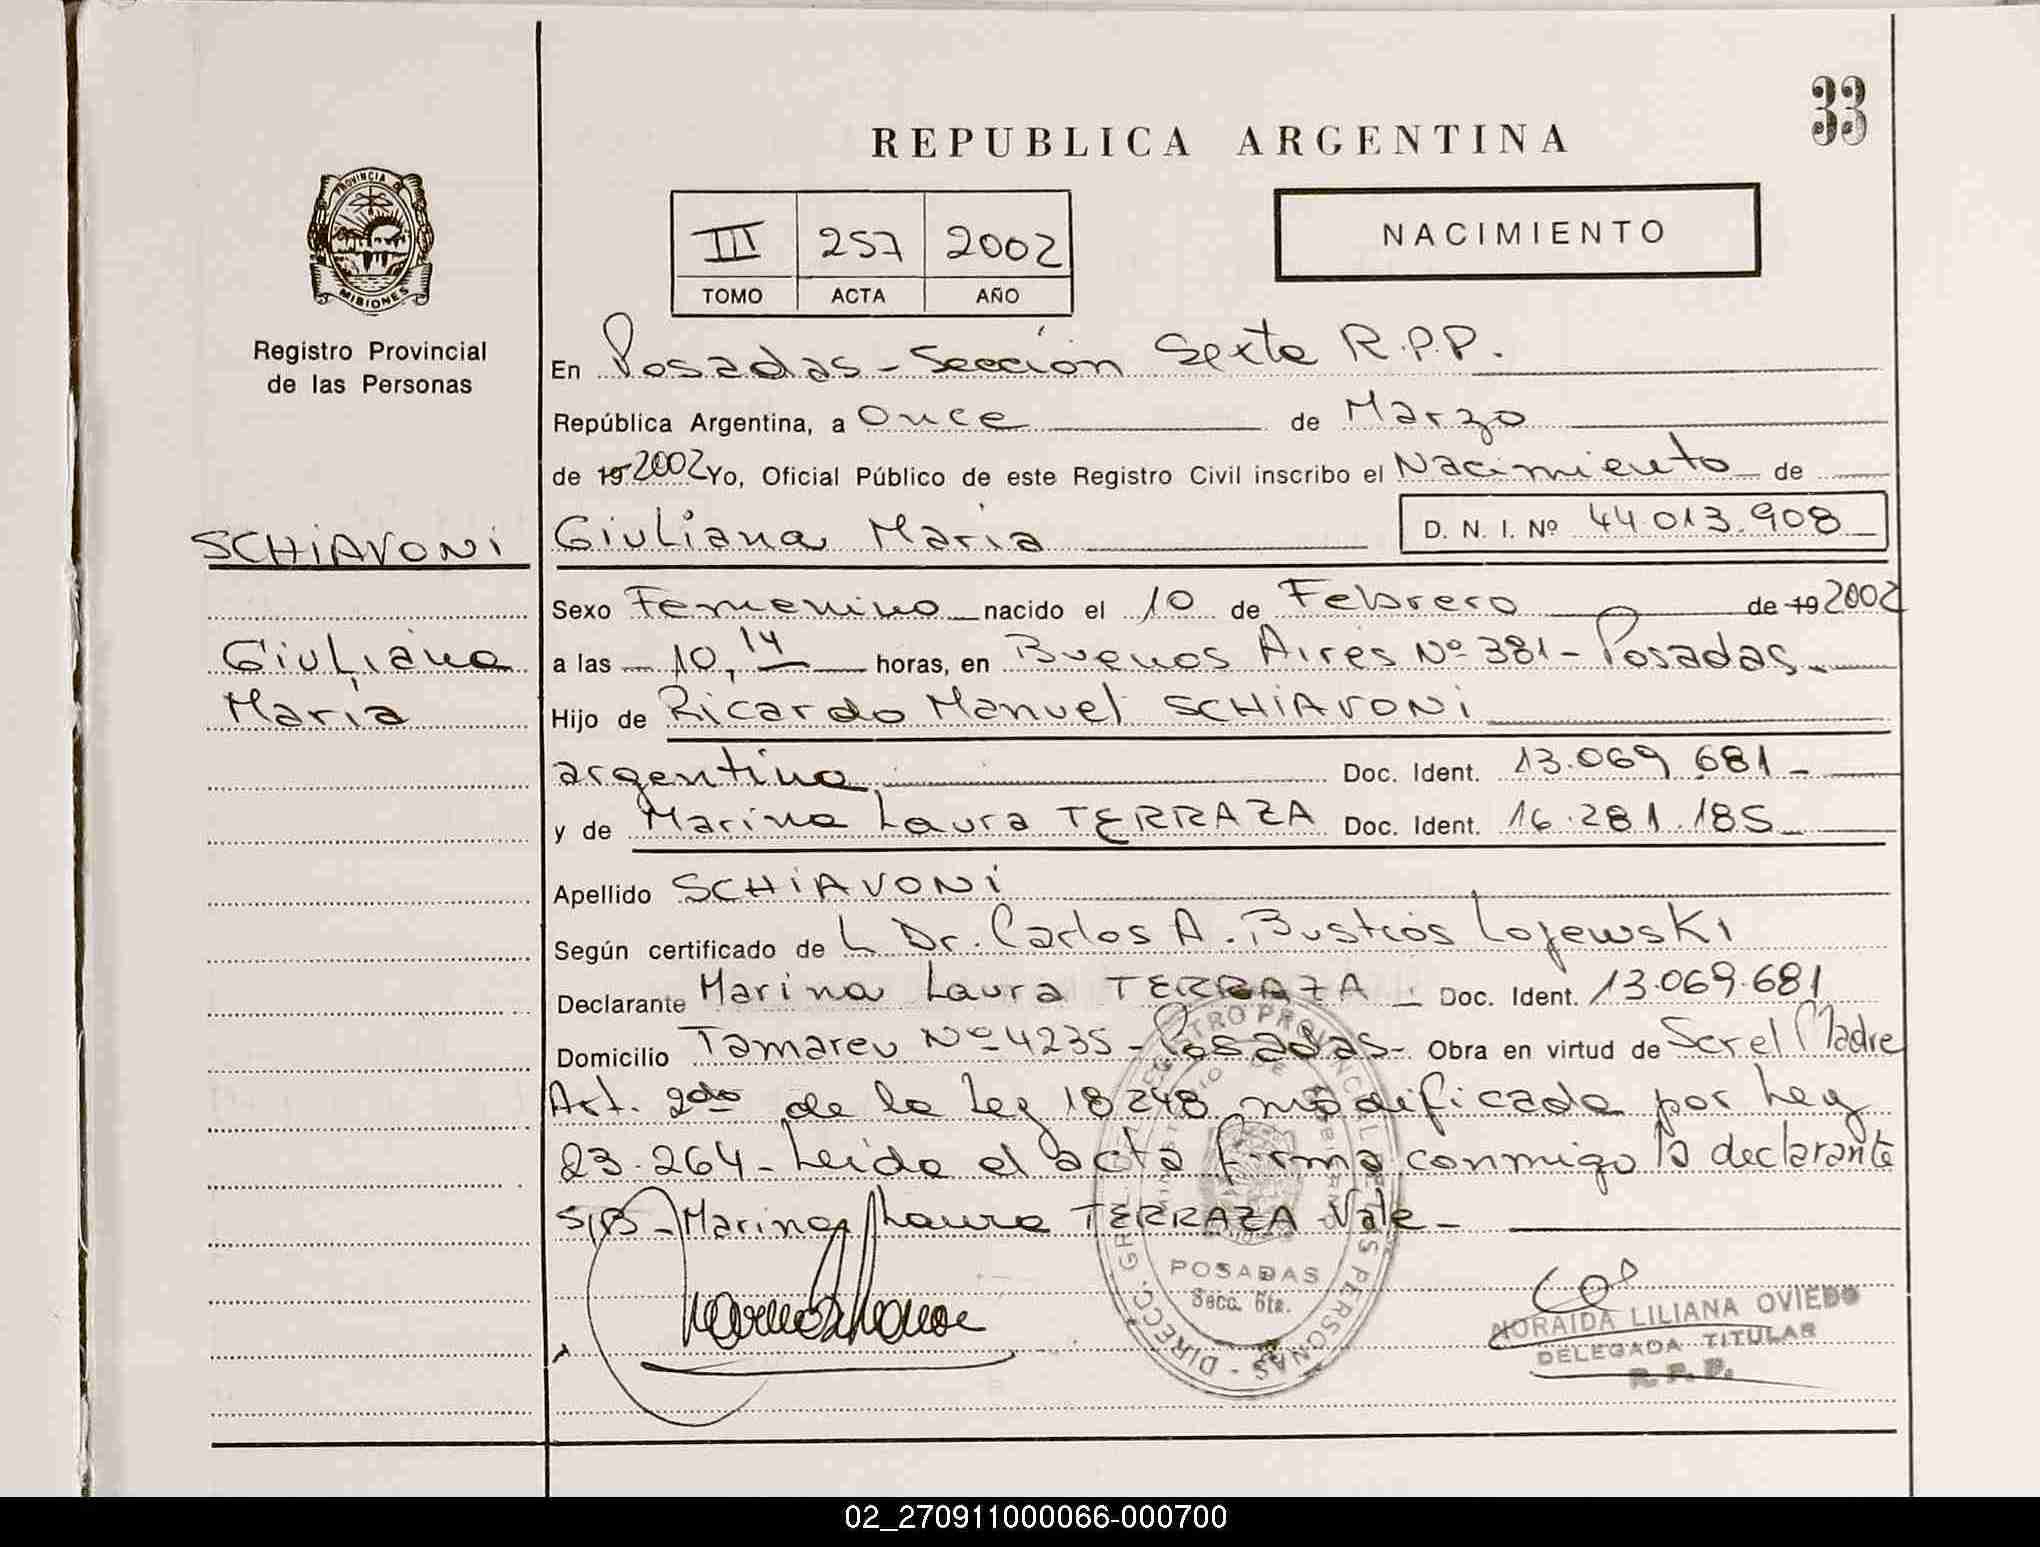 33
REPUBLICA ARGENTINA
PROVINCIA DE
MISIONES
III 257 2002
TOMO ACTA AÑO
NACIMIENTO
Registro Provincial
de las Personas
En Posadas - Sección Sexta R.P.P.
República Argentina, a Once de Marzo
de 19 2002 Yo, Oficial Público de este Registro Civil inscribo el Nacimiento de
SCHIAVONI
Giuliana Maria D. N. I. Nº 44.013.908
Sexo Femenino nacido el 10 de Febrero de 19 2002
Giuliana
María
a las 10,14 horas, en Buenos Aires Nº 381 - Posadas
Hijo de Ricardo Manuel SCHIAVONI
argentino Doc. Ident. 13.069 681 -
y de Marina Laura TERRAZA Doc. Ident. 16.281.185
Apellido SCHIAVONI
Según certificado de L Dr. Carlos A. Bustos Lojewski
Declarante Marina Laura TERRAZA - Doc. Ident. 13.069.681
Domicilio Tamareu Nº 4235 - Posadas - Obra en virtud de Ser el Madre
Art. 2do de la Ley 18248 modificada por Ley
23.264 - Leida el acta firma conmigo la declarante
S/B - Marina Laura TERRAZA Vale -
DIRECC. GRAL. REGISTRO PROVINCIAL DE LAS PERSONAS
POSADAS
Secc. 6ta.
NORAIDA LILIANA OVIEDO
DELEGADA TITULAR
R. P. P.
02_270911000066-000700